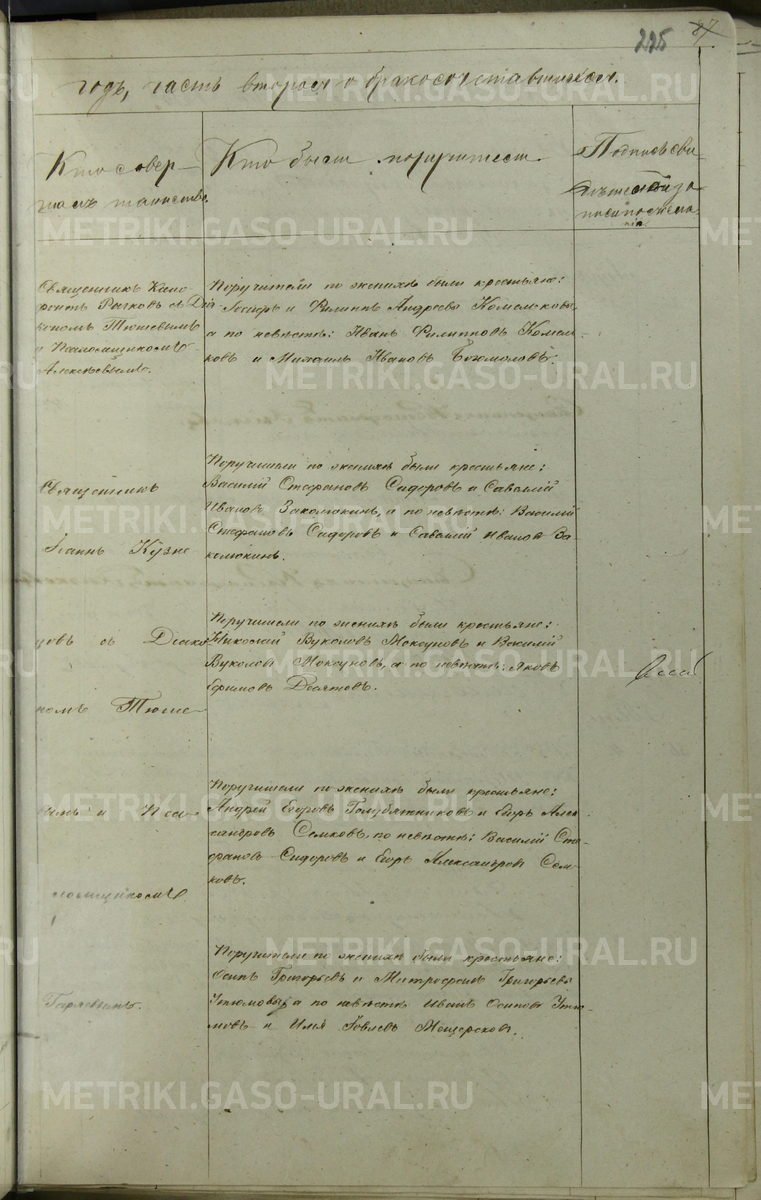 225 87
годъ, часть вторая о бракосочетавшихся.
Кто совер-
шалъ таинство.
Кто были поручители.
Подпись сви-
дѣтелей за-
писи по жела-
нію
Священникъ
Рычковъ съ Діа-
кономъ Тюшевымъ
и Псаломщикомъ
Алексѣевымъ.
Поручители по женихѣ были крестьяне:
и Филиппъ Андреевы
а по невѣстѣ: Иванъ Филипповъ
ковъ и Михаилъ Ивановъ Богомоловъ.
Священникъ
Іоаннъ Кузне
цовъ съ Діако
номъ Тюше-
вымъ и Пса-
ломщикомъ
Поручители по женихѣ были крестьяне:
Василій Стефановъ Сидоровъ и Савватій
Ивановъ Закомякинъ, а по невѣстѣ: Василій
Стефановъ Сидоровъ и Савватій Ивановъ За-
комякинъ.
Поручители по женихѣ были крестьяне:
Николай Вуколовъ Моксуновъ и Василій
Вуколовъ Моксуновъ, а по невѣстѣ: Яковъ
Ефимовъ Десятовъ.
Поручители по женихѣ были крестьяне:
Андрей Егоровъ Голубятниковъ и Егоръ Алек-
сандровъ Семковъ, по невѣстѣ: Василій Сте-
фановъ Сидоровъ и Егоръ Александровъ Сем-
ковъ.
Поручители по женихѣ были крестьяне:
Осипъ Григорьевъ и Митрофанъ Григорьевъ
Утюмовы, а по невѣстѣ Иванъ Осиповъ Утю-
мовъ и Илья Мещеряковъ.
METRIKI.GASO-URAL.RU